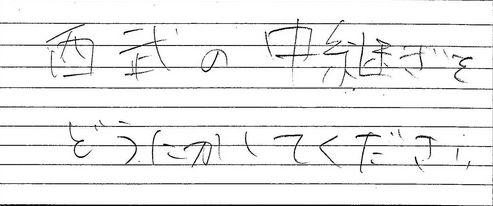 西武の中継ぎを
どうにかしてください